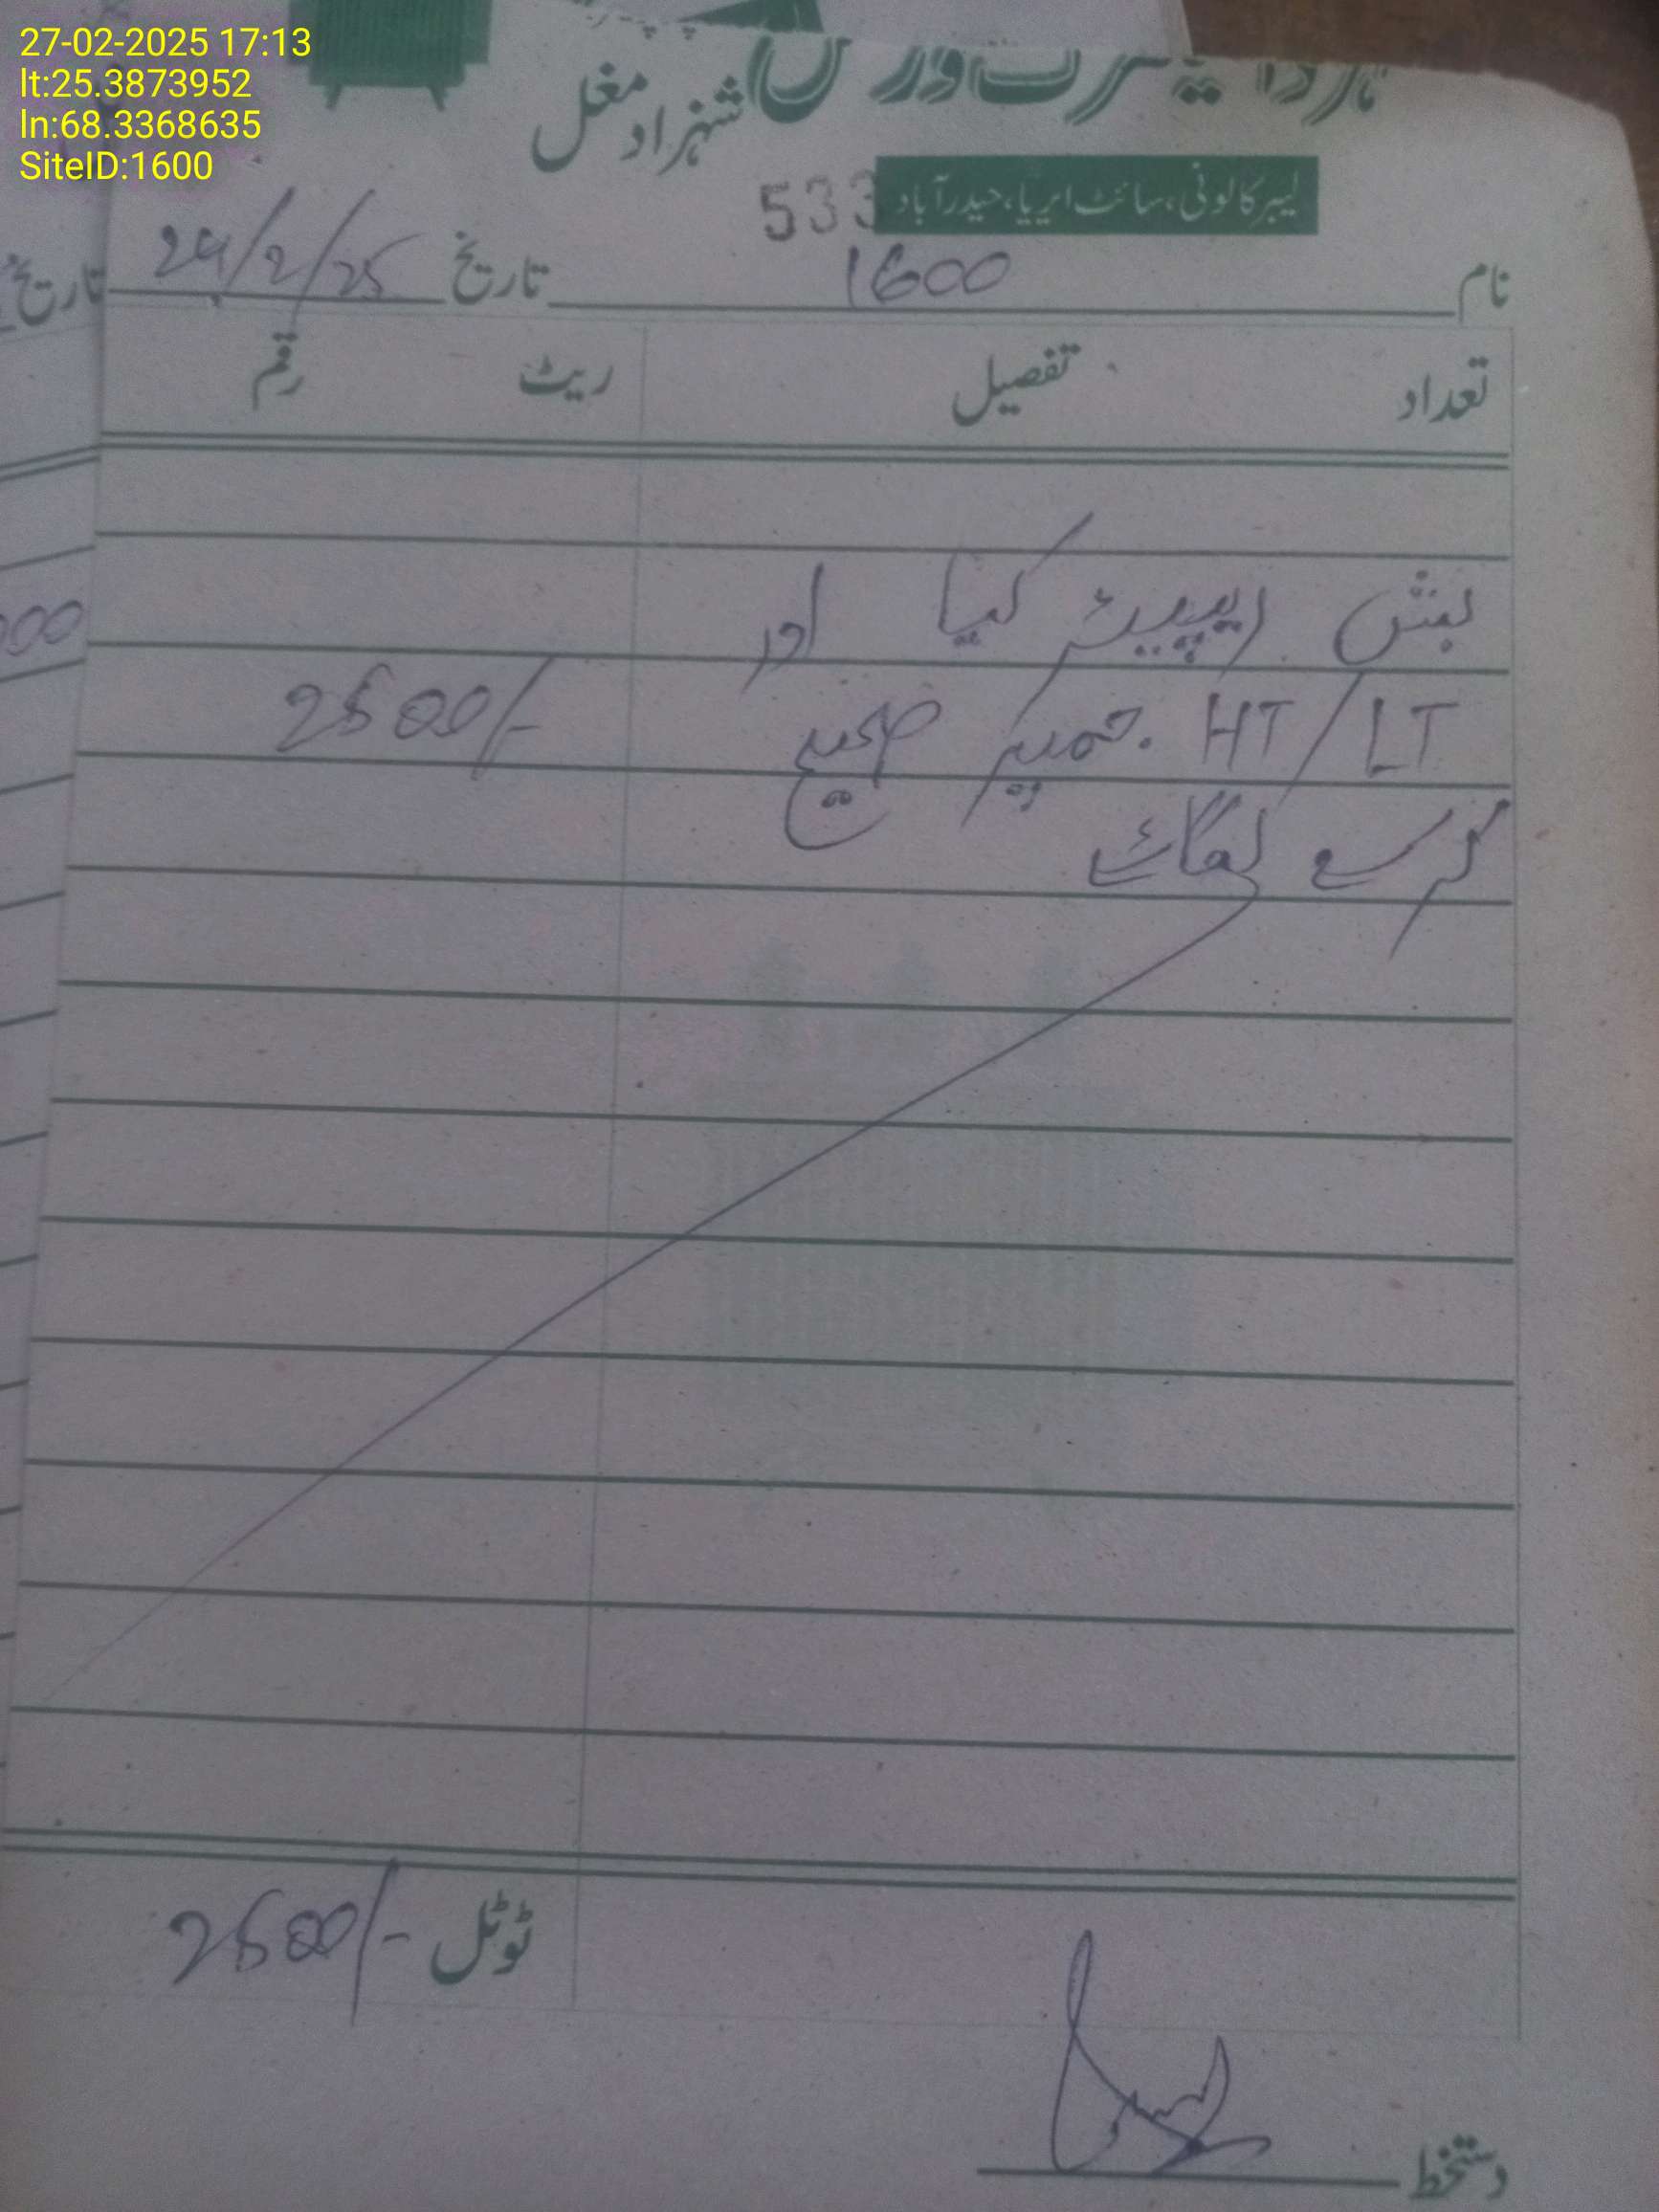 27-02-2025 17:13
lt:25.3873952
ln:68.3368635
SiteID:1600
شہزاد مغل
لیبر کالونی، سائٹ ایریا، حیدرآباد
533
نام 1600 تاریخ 24/2/25
تاریخ
تعداد تفصیل ریٹ رقم
بش ریپیئر کیا اور
LT / HT جمپر صحیح 2500/-
کر کے لگائے
00
ٹوٹل 2500/-
دستخط